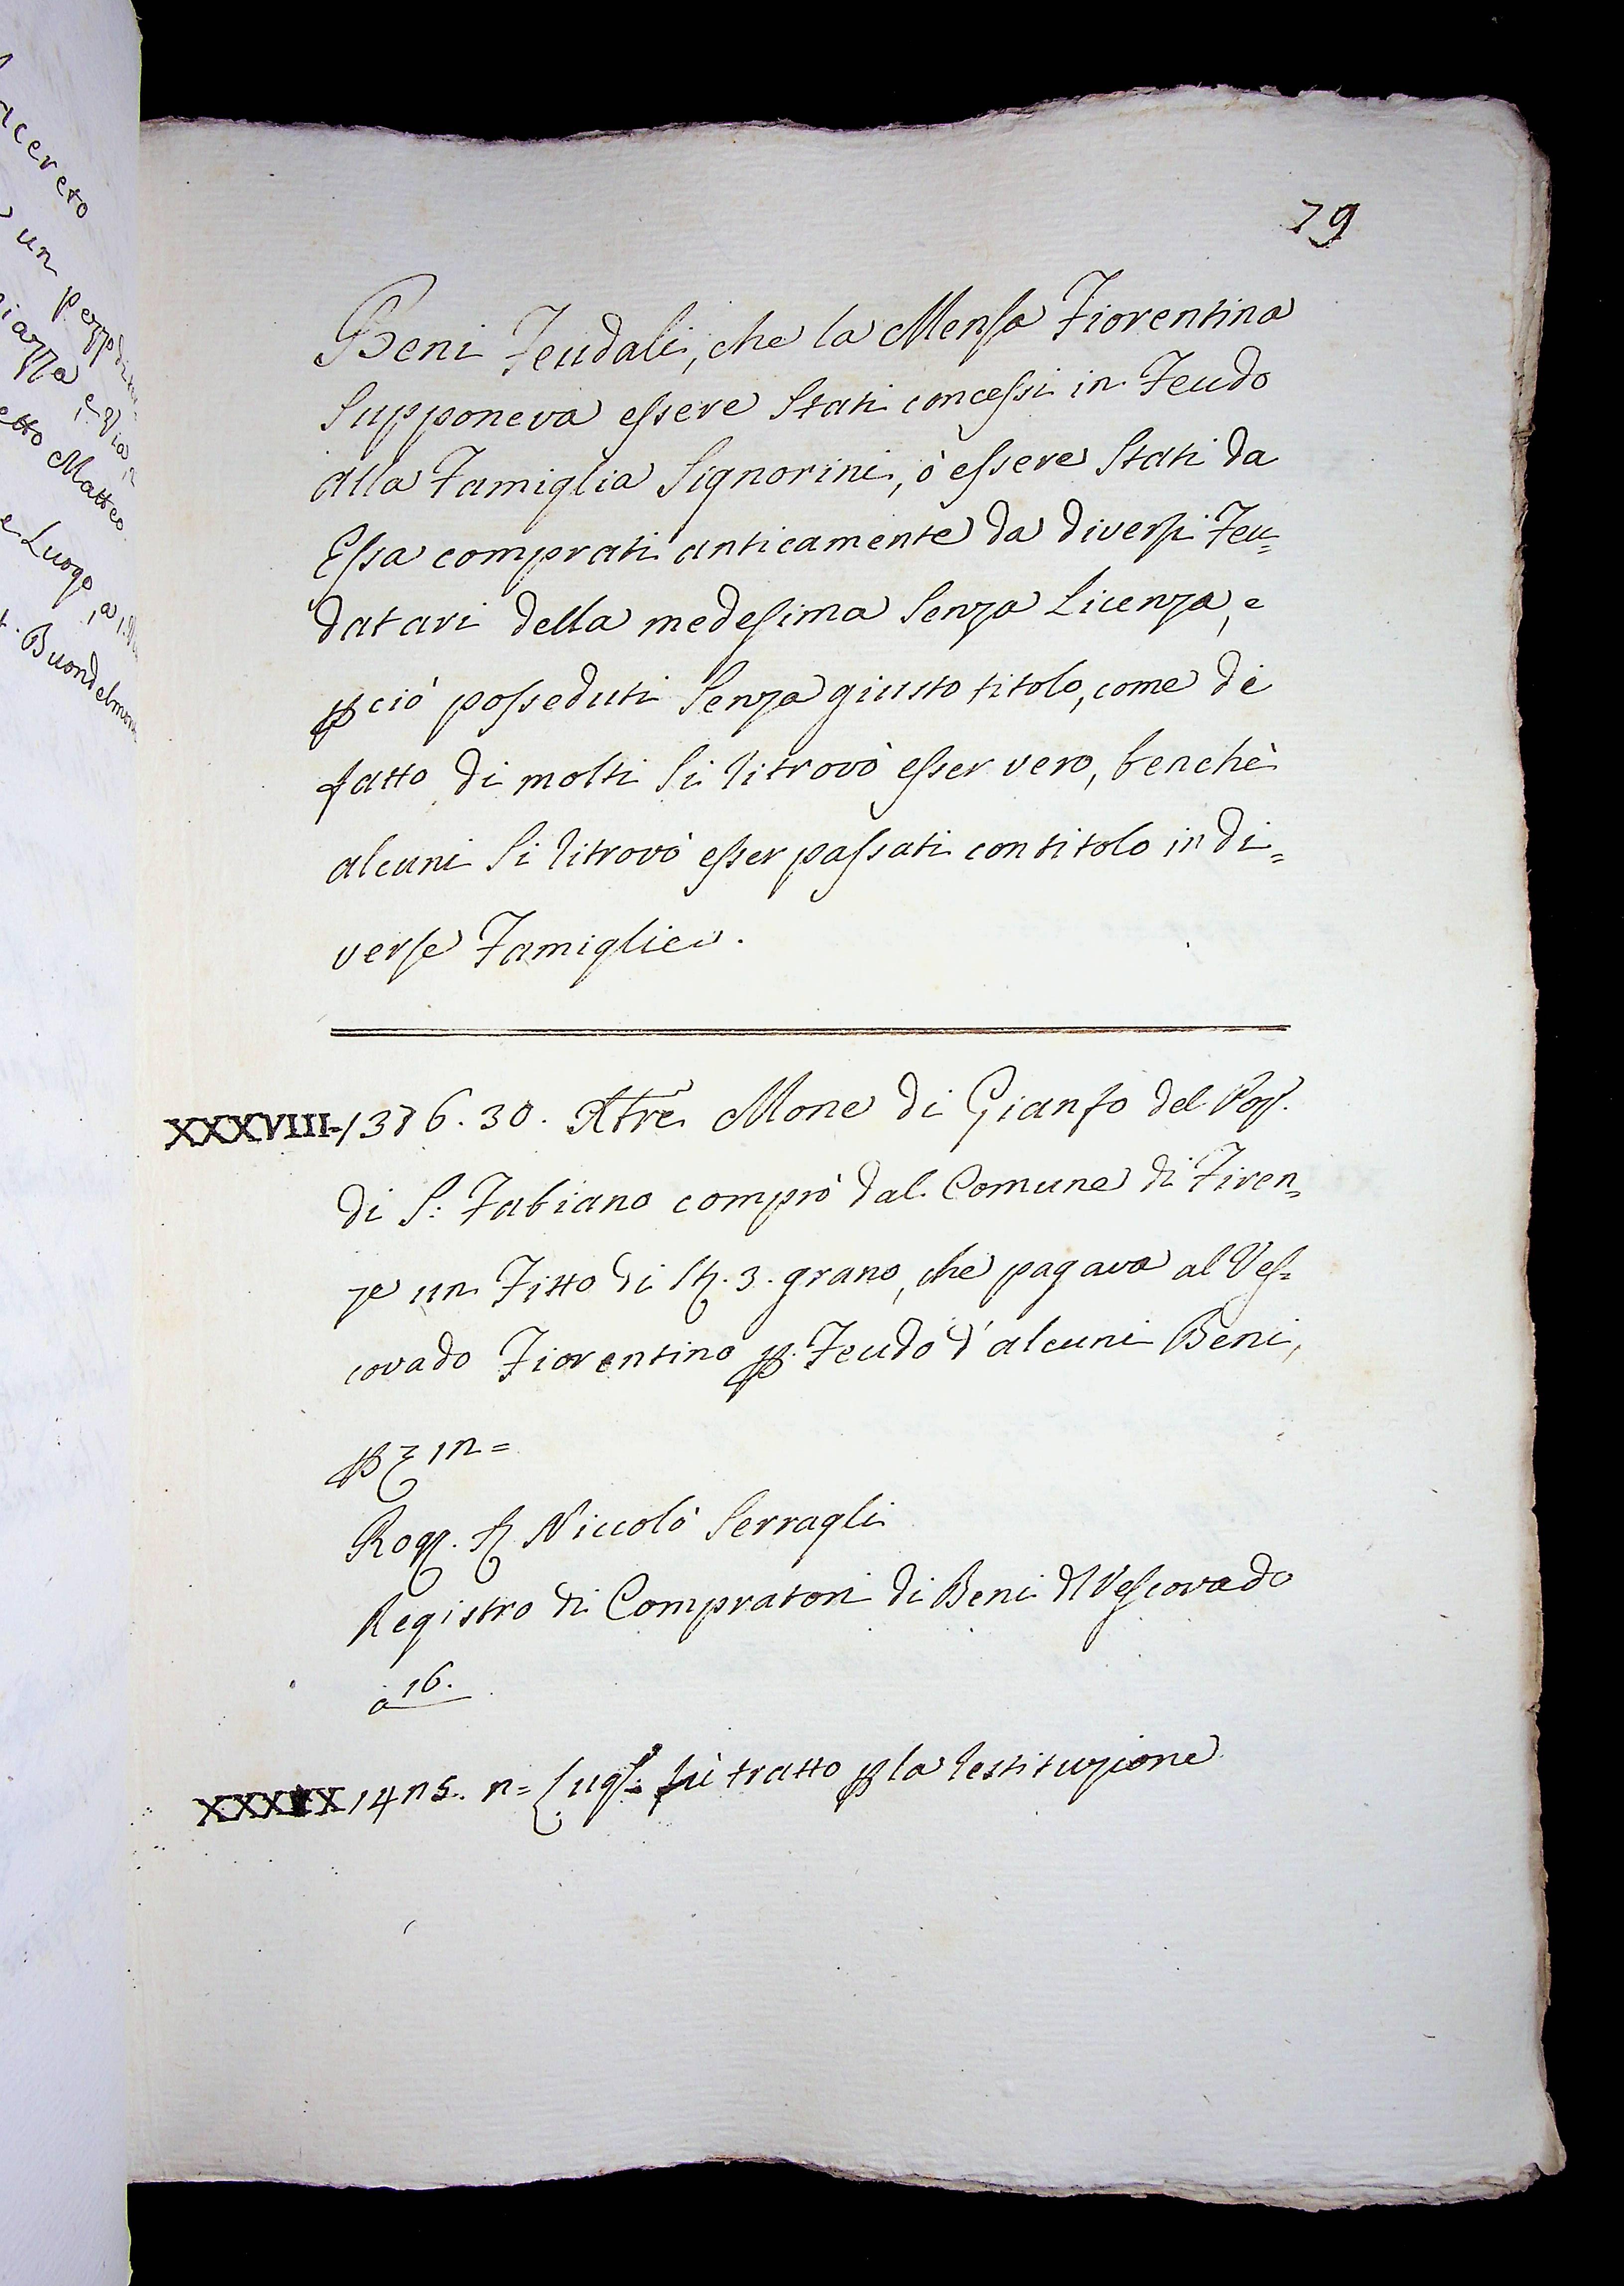 79
Beni Feudali, che la Mensa Fiorentina
Supponeva essere Stati concessi in Feudo
alla Famiglia Signorini, ò essere Stati da
Essa comprati anticamente da diversi Feu=
datari della medesima Senza Licenza, e
pciò posseduti Senza giusto titolo, come di
fatto di molti Si ritrovò esser vero, benchè
alcuni Si ritrovò esser passati con titolo in di=
verse Famiglie.
XXXVIII-1376. 30. Mone di Gianfo del Pop.
di S: Fabiano comprò dal Comune di Firen=
ze un Fitto di St. 3. grano, che pagava al Ves=
covado Fiorentino p. Feudo d'alcuni Beni,
Rog. Niccolò Serragli
Registro di Compratori di Beni dl Vescovado
a 16.
XXXIX Lugl: fù tratto p la restituzione
ncereto
un pezzo di
iazza, e Via,
etto Matteo
e Luogo, a
Buondelmon